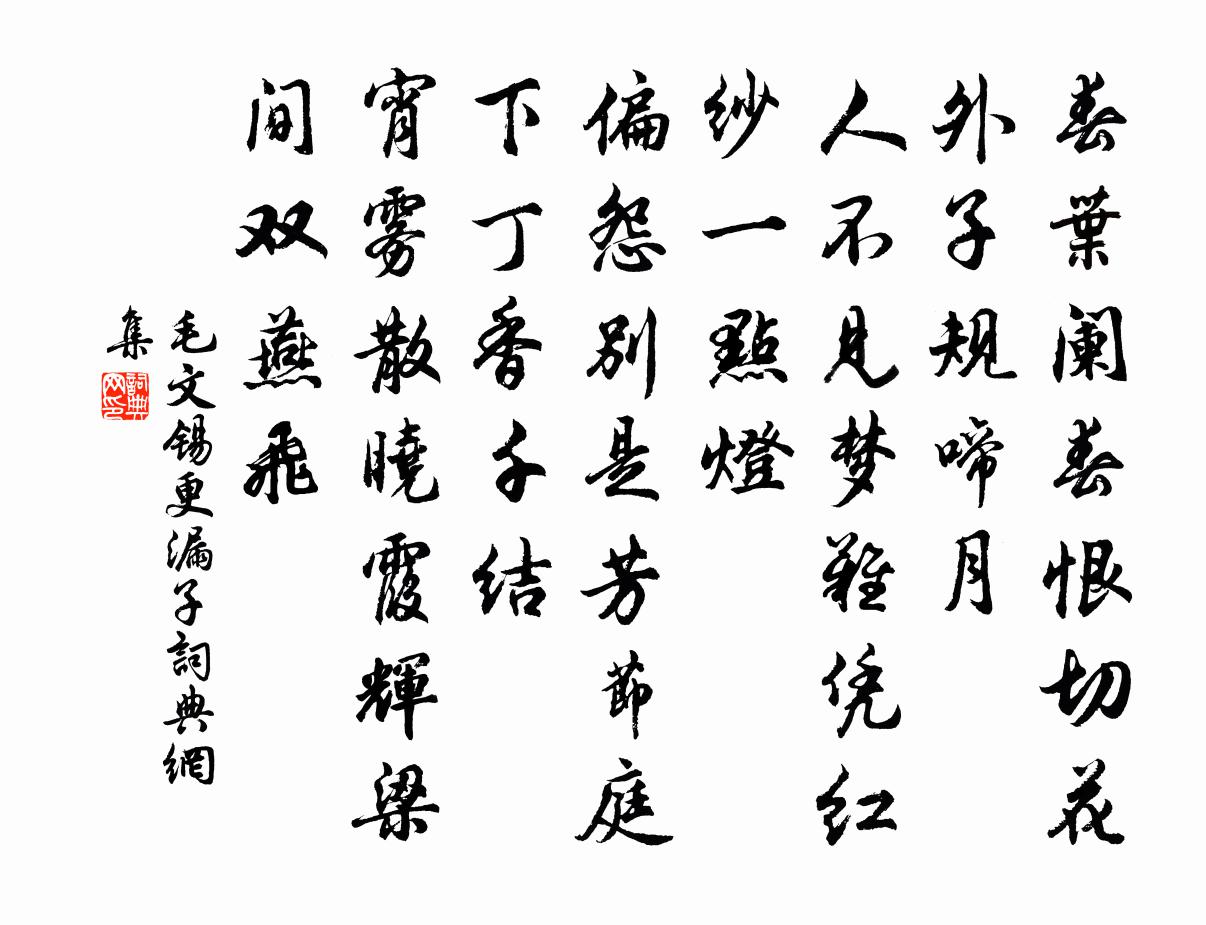 春葉阑春恨切花
外子规啼月
人不见梦難凭红
纱一點燈
偏怨别是芳節庭
下丁香千结
宵雾散曉霞輝梁
间双燕飛
毛文锡更漏子詞典網
集
詞典网印